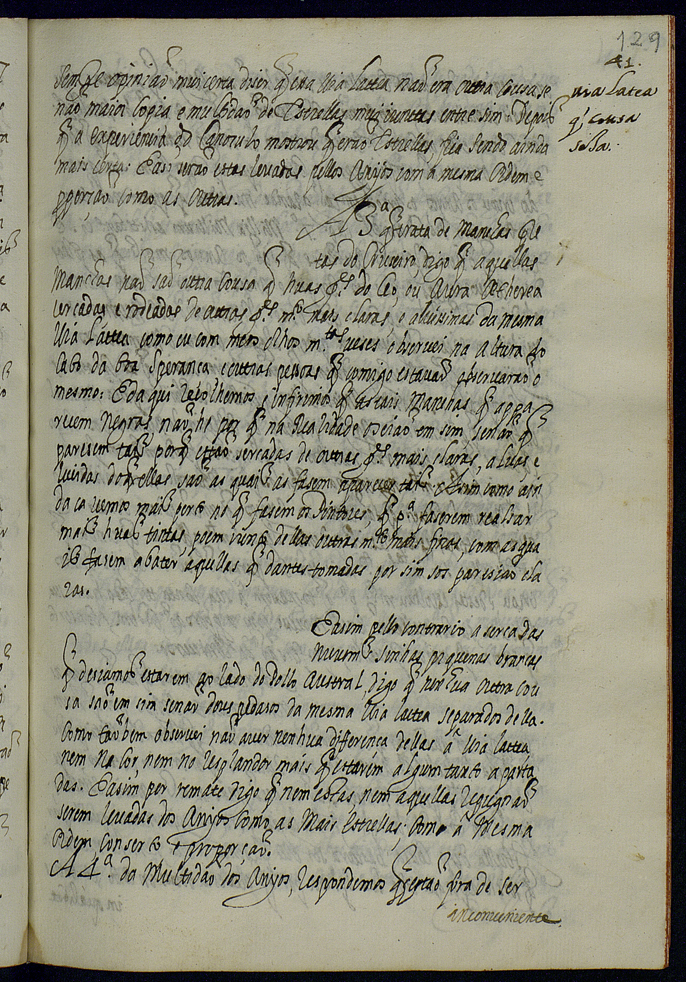 129
41.
Via Latea
q' cousa
seja.
sempre opiniaõ mui certa dizer q̃ esta Via Lattea naõ era outra cousa se
naõ maior copia e multidaõ de Estrellas mui juntas entre sim. Depois
q̃ a experiencia do Canoculo mostrou q̃ eraõ Estrellas, fica sendo ainda
mais certa: E assi seraõ estas levadas pellos Anjos com a mesma ordem e
pporçaõ como as outras.
A 3ª q̃ trata de Manchas
tas do Cruzeiro, digo q̃ aquellas
Manchas naõ saõ outra cousa q̃ huas p.tes do Ceo, ou Aura Etherea
cercadas e rodeadas de outras p.tes m.to mais claras, e alvissimas da mesma
Via Lattea como eu com meus olhos m.tas veses observei na altura do
Cabo da boa Sperança e outras pessoas q̃ comigo estavaõ observaraõ o
mesmo: E daqui recolhemos, e inferimos q̃ as tais Manchas q̃ appa
recem negras naõ he por q̃ na realidade o sejaõ em sim, senaõ q̃
parecem tais porq̃ estaõ sercadas de outras p.tes mais claras, alvas e
lusidas do q̃ ellas saõ as quais as fasem aparecer tais. Assim como ain
da ca vemos mais perto no q̃ fasem os Pintores, q̃ p.ª faserem realsar
mais huas tintas, poem junto dellas outras m.to mais finas, com as qua
is fasem abater aquellas q̃ dantes tomadas por sim sos pareciaõ cla
ras.
E assim pello contrario a serca das
nuvens sinhas piquenas brancas
q̃ desiamos estarem ao lado do Pollo Austral, digo q̃ nenhua outra cou
sa saõ em sim senaõ dous pedasos da mesma Via lattea separados della.
Como taõbem observei naõ aver nenhua differença dellas á Via lattea
nem na cor, nem no resplandor mais q̃ estarem algum tanto aparta
das. E assim por remate digo q̃ nem estas nem aquellas repugnaõ
serem levadas dos Anjos como as mais Estrellas: com a mesma
ordem conserto e proporçaõ.
A 4ª. da Multidaõ dos Anjos, respondemos q̃ estaõ fora de ser
inconveniente